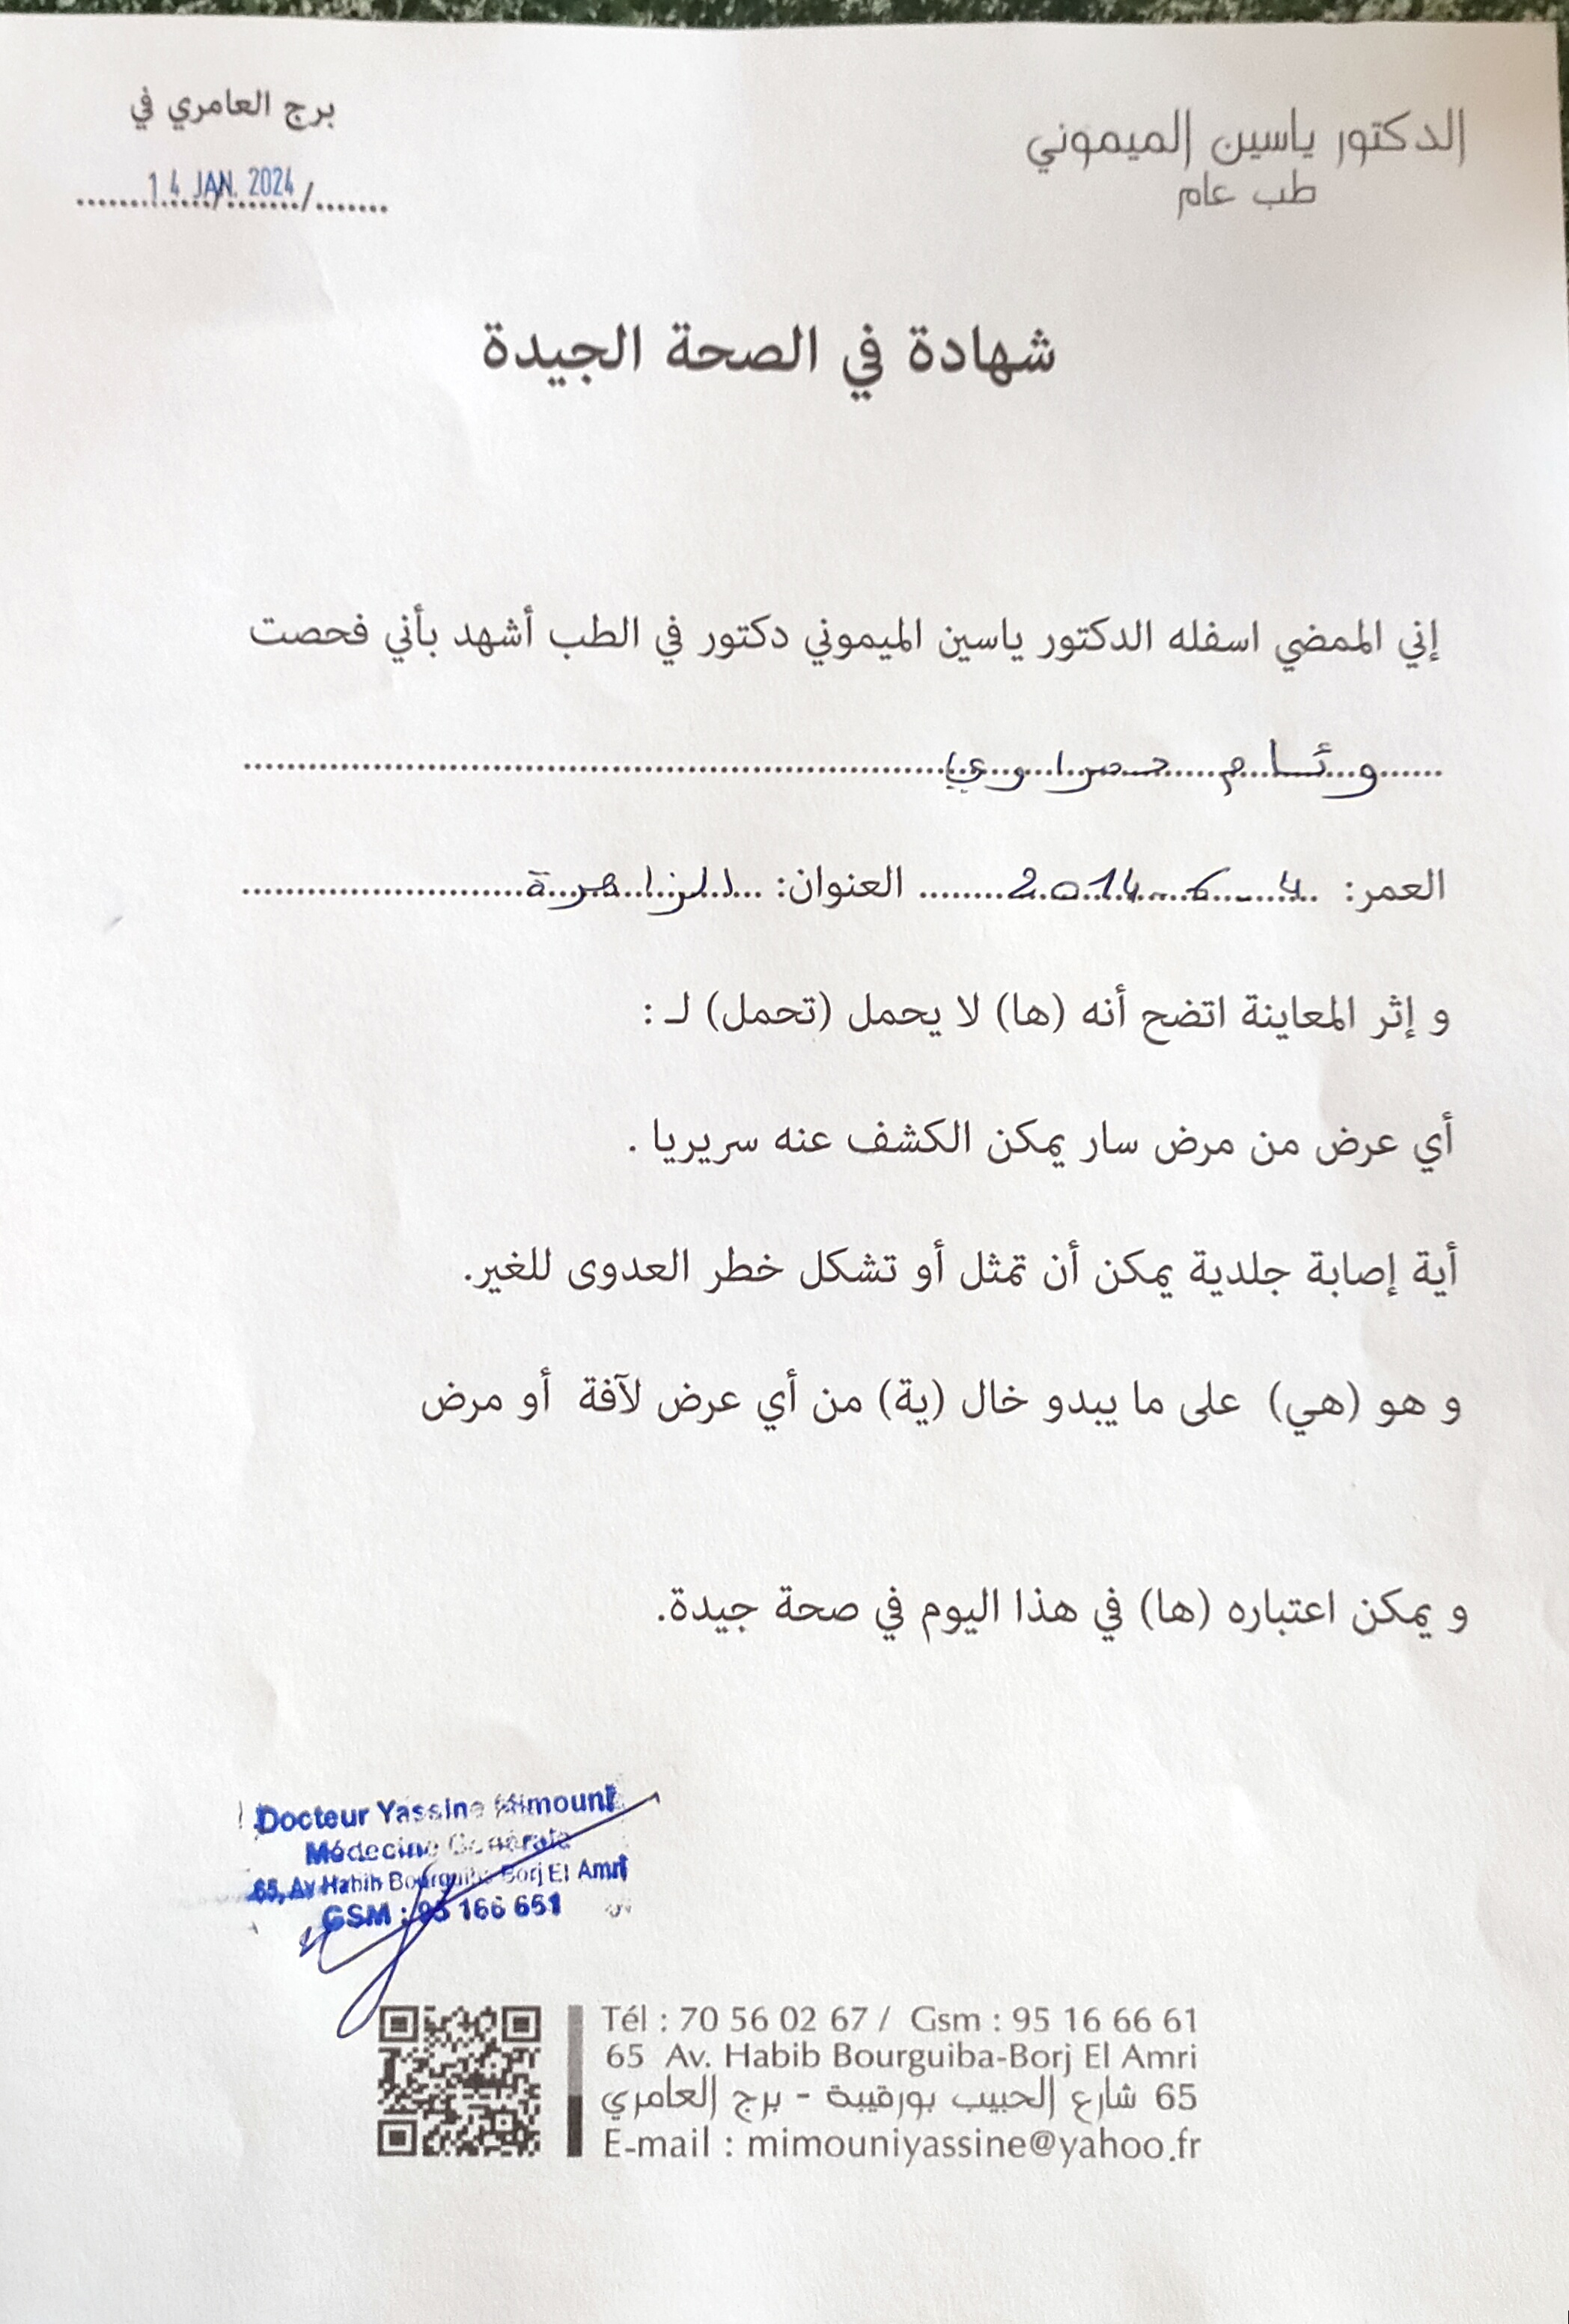 الدكتور ياسين الميموني
طب عام
برج العامري في
14 JAN. 2024
شهادة في الصحة الجيدة
إني الممضي اسفله الدكتور ياسين الميموني دكتور في الطب أشهد بأني فحصت
وئام
العمر: 4-6-2014 العنوان: الزاهرة
و إثر المعاينة اتضح أنه (ها) لا يحمل (تحمل) لـ :
أي عرض من مرض سار يمكن الكشف عنه سريريا .
أية إصابة جلدية يمكن أن تمثل أو تشكل خطر العدوى للغير.
و هو (هي) على ما يبدو خال (ية) من أي عرض لآفة أو مرض
و يمكن اعتباره (ها) في هذا اليوم في صحة جيدة.
Docteur Yassine Mimouni
Médecine Générale
65, Av Habib Bourguiba Borj El Amri
GSM : 95 166 651
Tél : 70 56 02 67 / Gsm : 95 16 66 61
65 Av. Habib Bourguiba-Borj El Amri
65 شارع الحبيب بورقيبة - برج العامري
E-mail : mimouniyassine@yahoo.fr